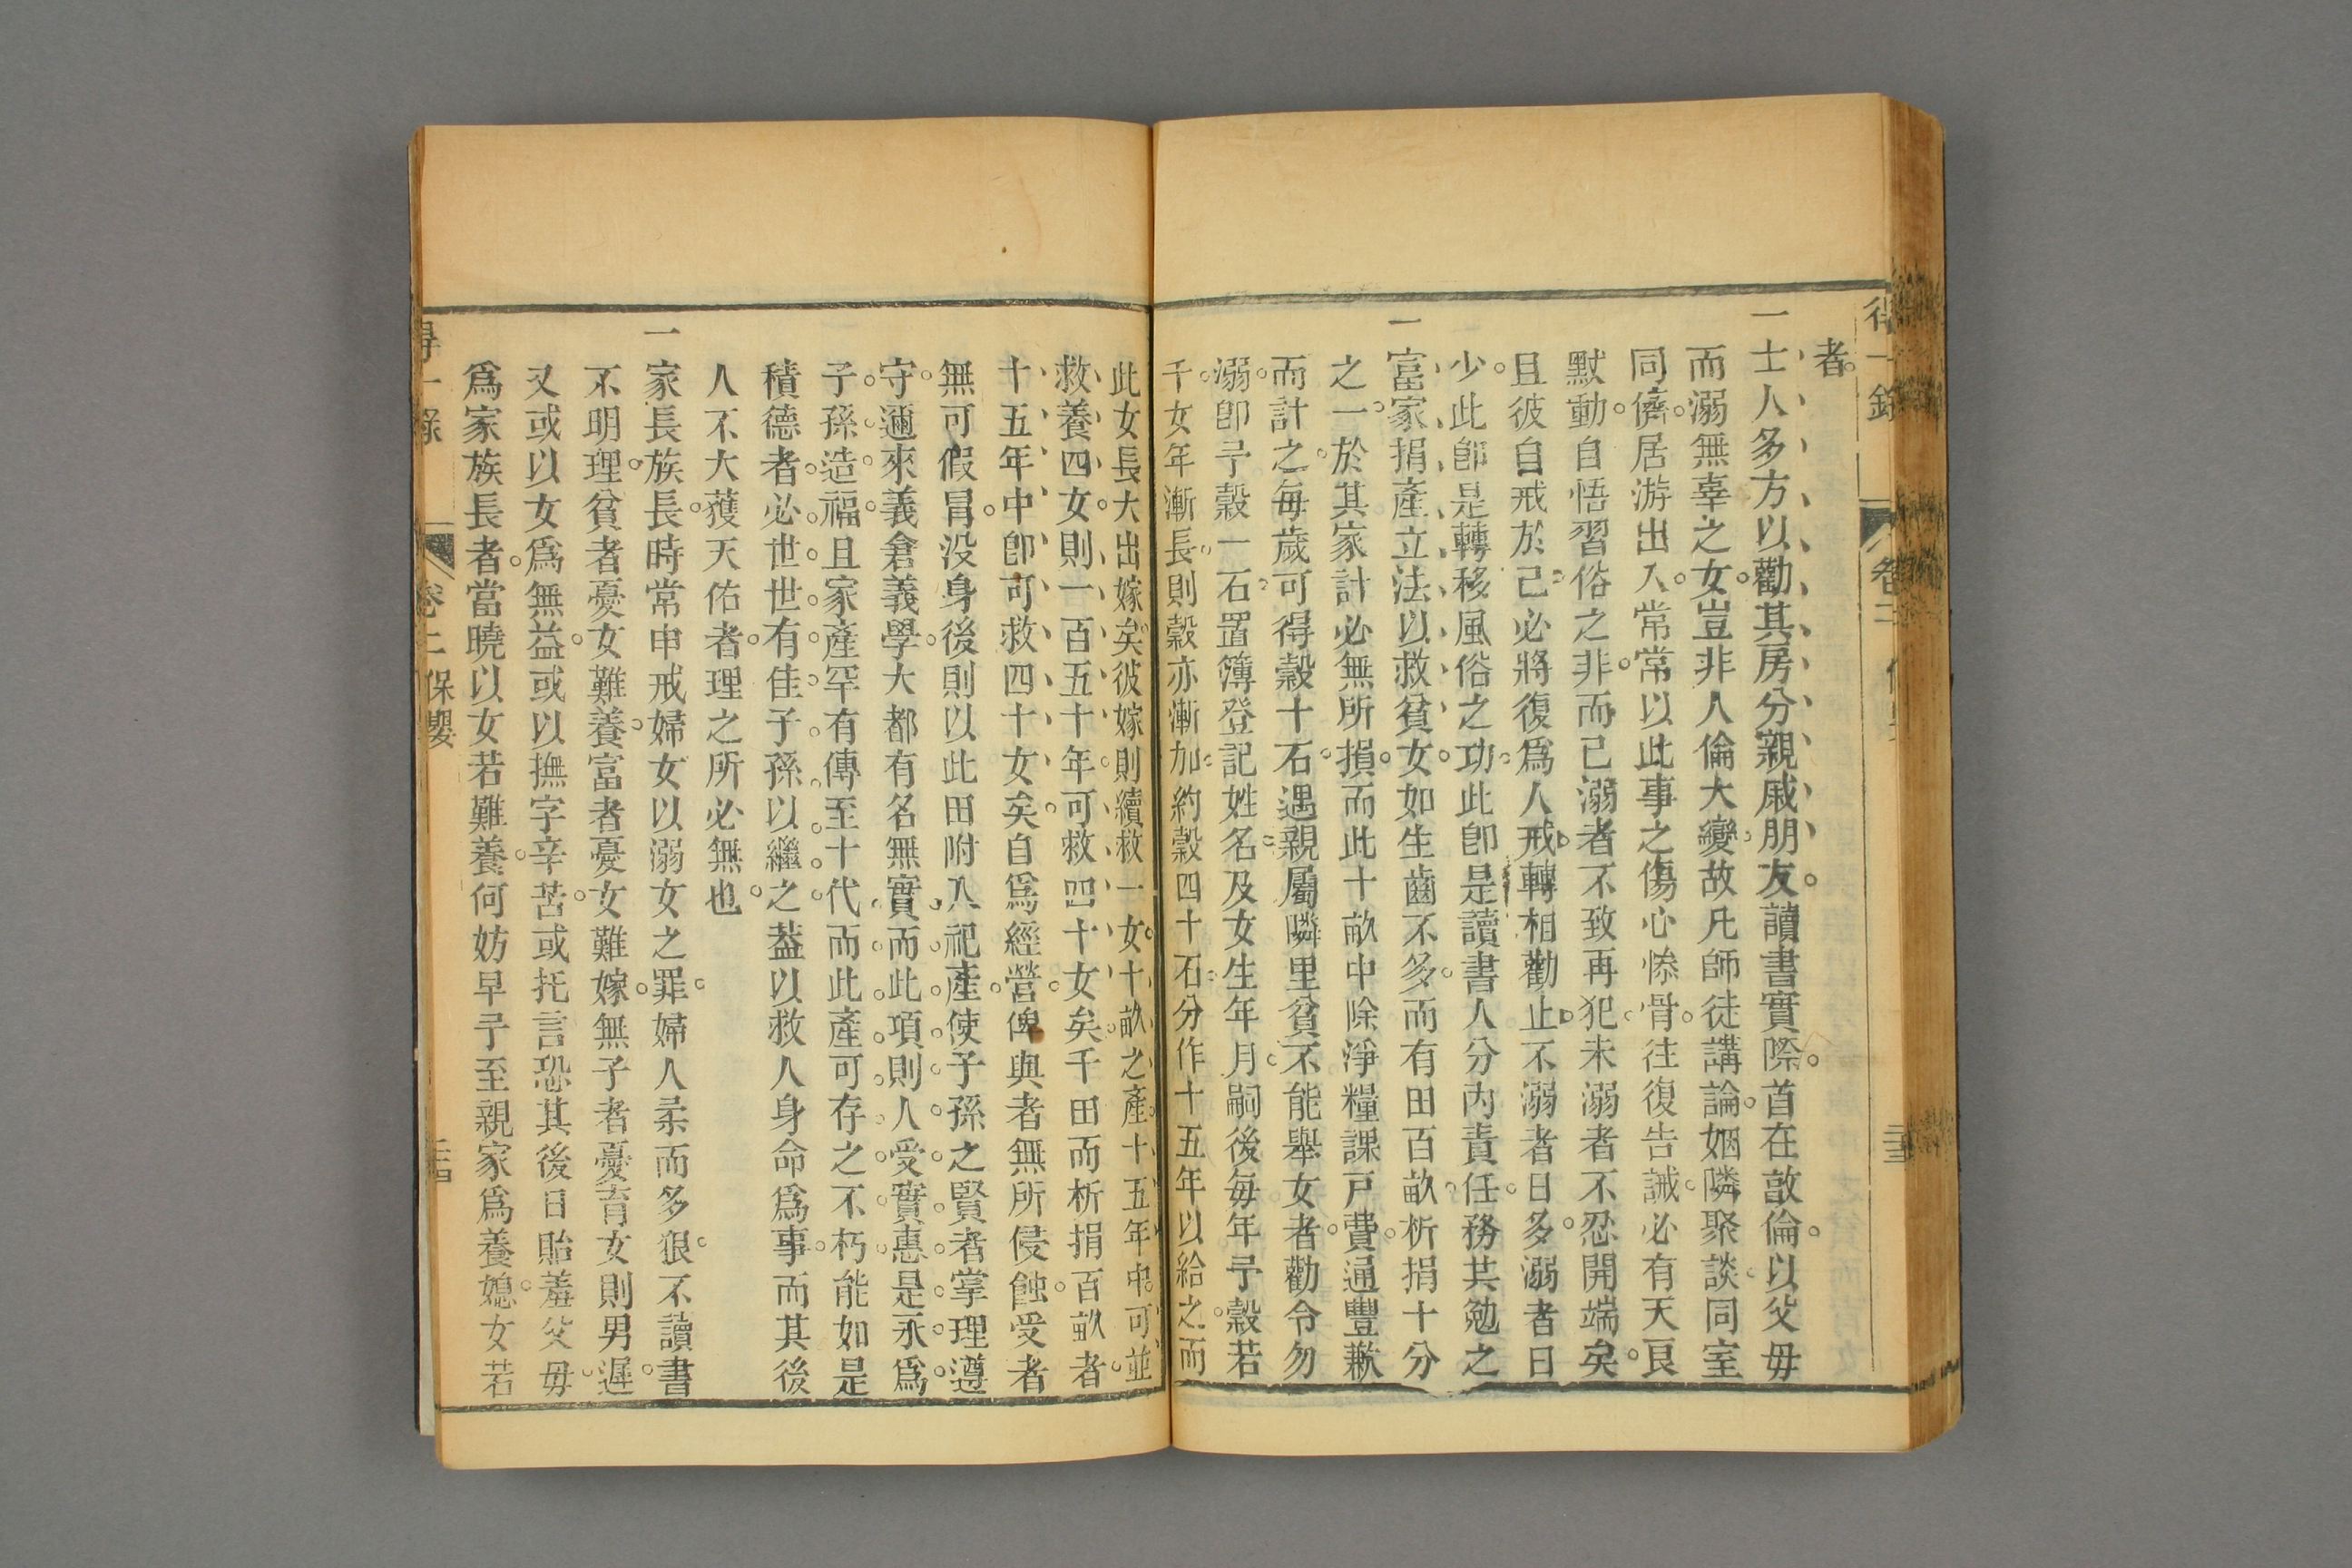 得一錄 卷二
者。
一士人多方以勸其房分親戚朋友。讀書實際。首在敦倫。以父毋
而溺無辜之女。豈非人倫大變。故凡師徒講論。姻隣聚談。同室
同儕。居游出入。常常以此事之傷心慘骨。往復告誡。必有天良
默動。自悟習俗之非。而已溺者不致再犯。未溺者不忍開端矣。
且彼自戒於己。必將復爲人戒。轉相勸止。不溺者日多。溺者日
少。此卽是轉移風俗之功。此卽是讀書人分內責任。務其勉之
一富家捐產立法以救貧女。如生齒不多。而有田百畝。析捐十分
之一。於其家計必無所損。而此十畝中除淨糧課戸費。通豐歉
而計之。每歲可得穀十石。遇親屬隣里貧不能舉女者。勸令勿
溺。卽予穀一石。置簿登記姓名。及女生年月。嗣後每年予穀若
千。女年漸長。則穀亦漸加。約穀四十石。分作十五年以給之。而
此女長大出嫁矣。彼嫁則續救一女。十畝之產。十五年中。可並
救養四女。則一百五十年可救四十女矣。千田而析捐百畝者。
十五年中卽可救四十女矣。自爲經營。俾與者無所侵蝕。受者
無可假冒。沒身後則以此田附入祀產。使子孫之賢者掌理遵
守。邇來義倉義學。大都有名無實。而此項則人受實惠。是永爲
子孫造福。且家產罕有傳至十代。而此產可存之不朽。能如是
積德者。必世世有佳子孫以繼之。葢以救人身命爲事。而其後
人不大獲天佑者。理之所必無也。
一家長族長。時常申戒婦女以溺女之罪。婦人柔而多狠。不讀書
不明理。貧者憂女難養。富者憂女難嫁。無子者憂育女則男遲。
又或以女爲無益。或以撫字辛苦。或托言恐其後日貽羞父毋。
爲家族長者。當曉以女若難養。何妨早予至親家爲養媳。女若
得一錄 卷二 保嬰